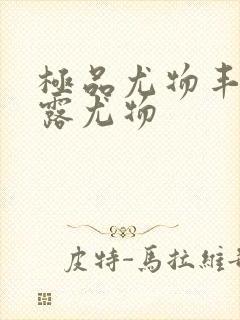 極品尤物丰
露尤物
皮特-馬拉維